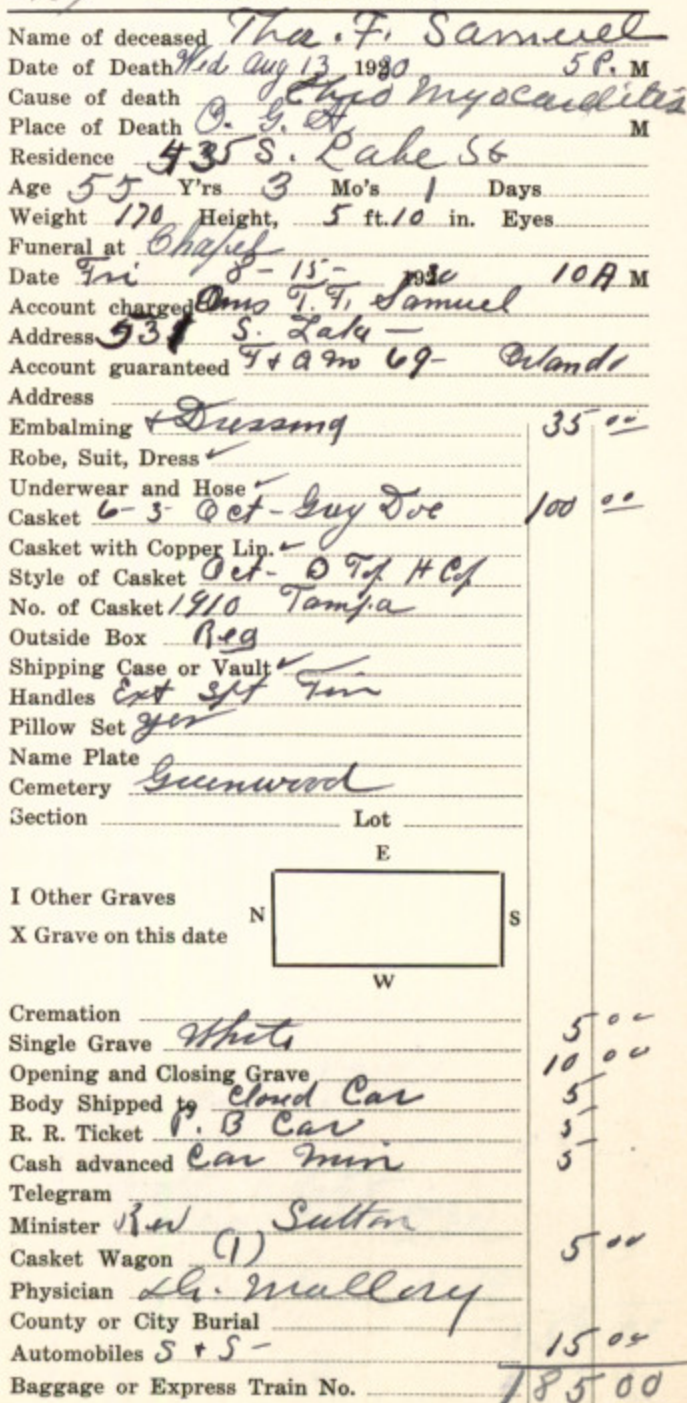 Name of deceased Thos. F. Samuel
Date of Death Wed Aug 13 1930 5 P. M
Cause of death Chro Myocarditis
Place of Death O. G. H. M
Residence 435 S. Lake St
Age 55 Y'rs 3 Mo's 1 Days
Weight 170 Height, 5 ft. 10 in. Eyes
Funeral at Chapel
Date Fri 8-15- 1930 10 A M
Account charged Mrs T. F. Samuel
Address 531 S. Lake -
Account guaranteed F + A M 69 - Orlando
Address
Embalming + Dressing 35 00
Robe, Suit, Dress ✓
Underwear and Hose ✓
Casket 6-3 Oct - Gray Doe 100 00
Casket with Copper Lin. ✓
Style of Casket Oct - D Top H Cp
No. of Casket 1910 Tampa
Outside Box Reg
Shipping Case or Vault ✓
Handles Ext Spt Tin
Pillow Set yes
Name Plate
Cemetery Greenwood
Section Lot
E
I Other Graves
N S
X Grave on this date
W
Cremation
Single Grave White 5 00
Opening and Closing Grave 10 00
Body Shipped to Closed Car 5
R. R. Ticket P. B Car 5
Cash advanced Car Min 5
Telegram
Minister Rev Sutton
Casket Wagon (1) 5 00
Physician Dr. Mallory
County or City Burial
Automobiles S + S - 15 00
Baggage or Express Train No. 185 00